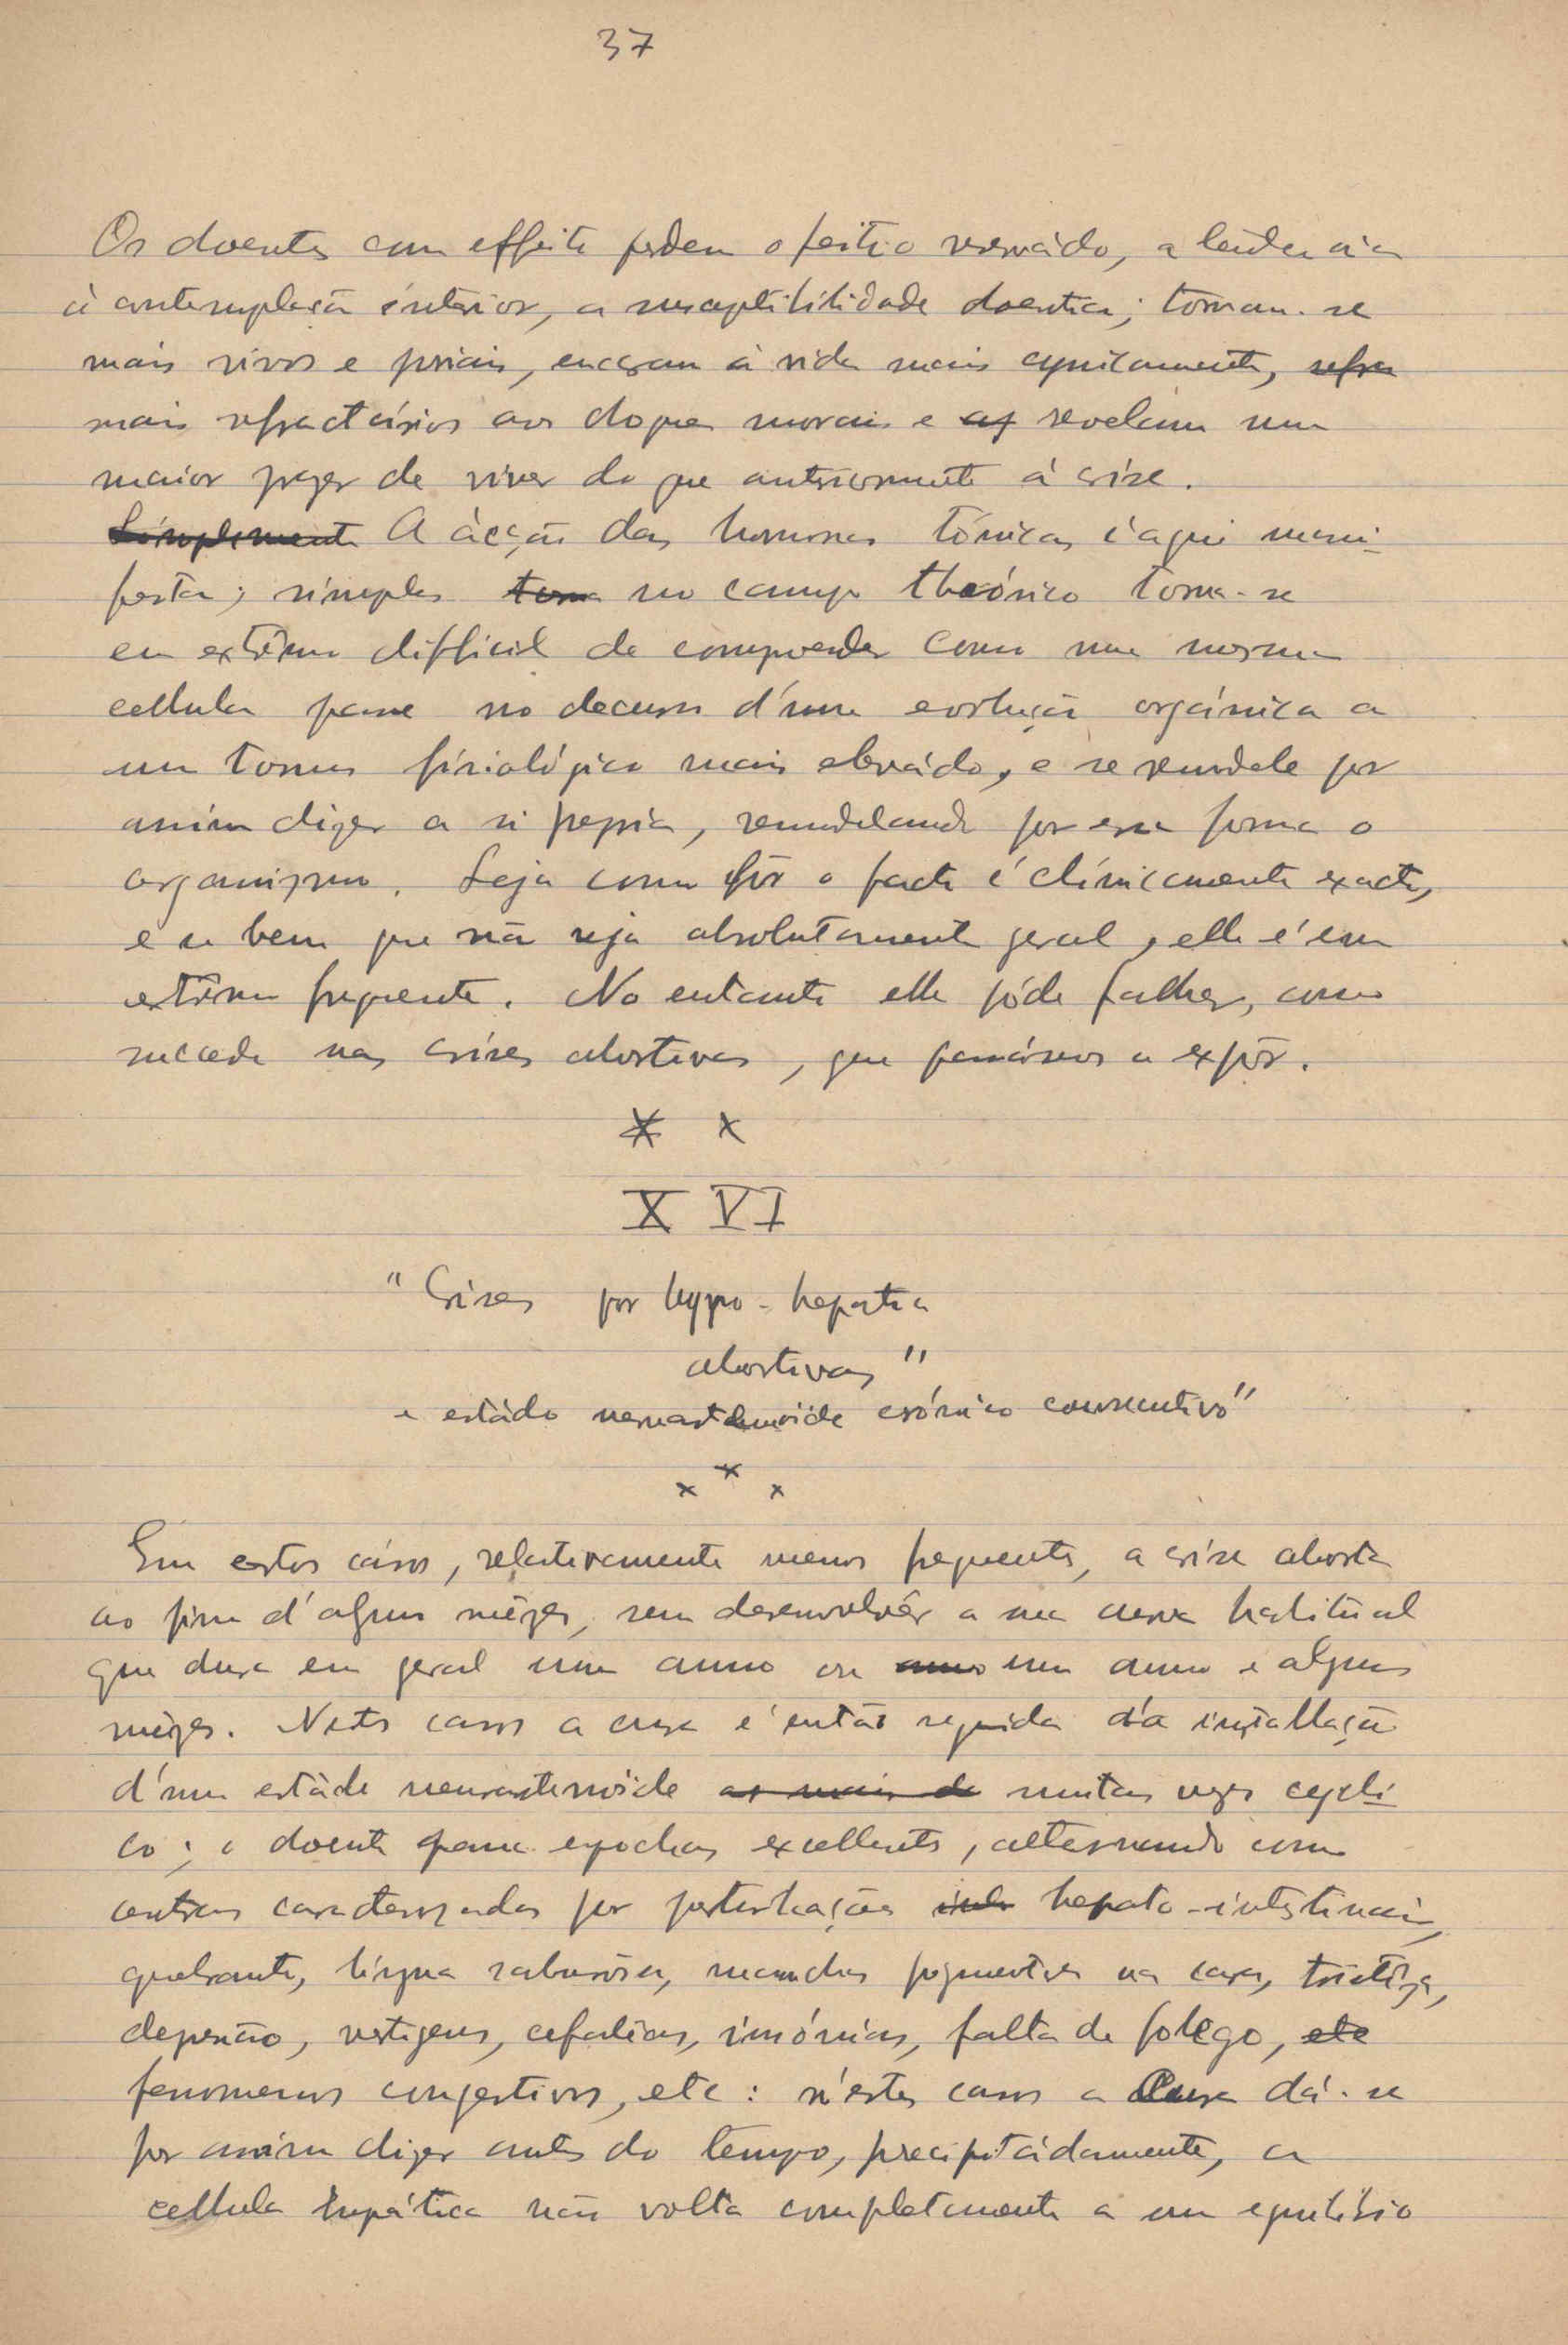 37
Os doentes com effeito perdem o feitio reservádo, a tendencia
á contemplação interior, a susceptibilidade doentia; tornam-se
mais vivos e joviais, encaram a vida mais cynicamente, refra
mais refractários aos choques morais e as revelam um
maior prazer de viver do que anteriormente á crise.
Simplesmente A ácção das hormonas tónicas é aqui mani-
festa; simples torna no campo theórico torna-se
em extrêmo difficil de comprender como uma mesma
cellula passe no decurso d'uma evolução orgánica a
um tonus fisiológico mais elevádo, e se remodele por
assim dizer a si propria, remodelando por essa forma o
organismo. Seja como fôr o facto é clínicamente exacto,
e se bem que não seja absolutamente geral, elle é em
extrêmo frequente. No entanto elle póde falhar, como
succede nas crises abortivas, que passámos a expôr.
* x
XVI
"Crises por hypo-hepatia
abortivas"
e estádo neurasthenoide crónico consecutivo"
x x x
Em estes cásos, relativamente menos frequentes, a crise aborta
ao fim d'alguns mêzes, sem desenvolvêr a sua curva habitual
que dura em geral um anno ou anno um anno e alguns
mêzes. Nestes casos a crise é então seguida d'a installação
d'um estádo neurastenoide as mais de muitas vezes cycli-
co; o doente passa epochas excellentes, alternando com
outras caracterizadas por perturbações inte hepato-intestinais,
quebranto, língua saburrósa, manchas pigmentares na cara, tristêza,
depressão, vertigens, cefaleias, insónias, falta de folego, etc
fenomenos congestivos, etc: n'estes casos a Cura dá-se
por assim dizer antes do tempo, precipitádamente, a
cellula hepática não volta completamente a um equilibrio